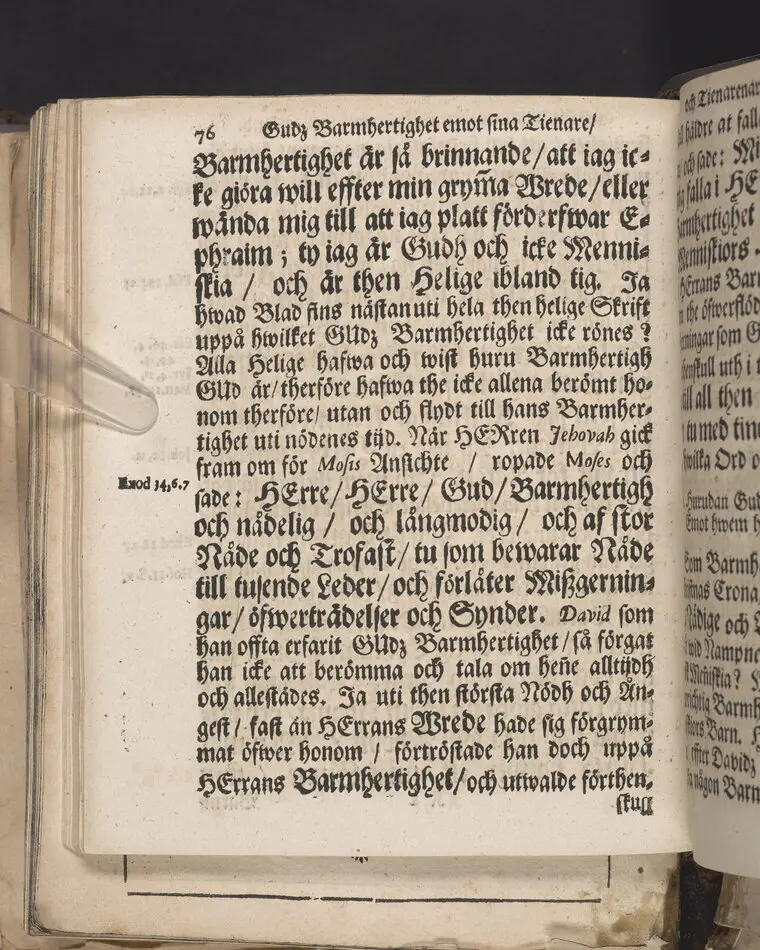 76 Gudz Barmhertighet emot sina Tienare/
Barmhertighet är så brinnande/att iag ic-
ke giöra will effter min grym̃a Wrede/eller
wända mig till att iag platt förderfwar E-
phraim; ty iag är Gudh och icke Menni-
skia / och är then Helige ibland tig. Ja
hwad Blad fins nästan uti hela then helige Skrift
uppå hwilket GUdz Barmhertighet icke rönes?
Alla Helige hafwa och wist huru Barmhertigh
GUd är/therföre hafwa the icke allena berömt ho-
nom therföre/ utan och flydt till hans Barmher-
tighet uti nödenes tijd. När HERren Jehovah gick
fram om för Mosis Ansichte / ropade Moses och
Exod 34,6.7
sade: HErre/HErre/ Gud/Barmhertigh
och nådelig / och långmodig/ och af stor
Nåde och Trofast/tu som bewarar Nåde
till tusende Leder/och förlåter Mißgernin-
gar/öfwerträdelser och Synder. David som
han offta erfarit GUdz Barmhertighet/så förgat
han icke att berömma och tala om heñe alltijdh
och allestädes. Ja uti then största Nödh och Ån-
gest/ fast än HErrans Wrede hade sig förgrym-
mat öfwer honom / förtröstade han doch uppå
HErrans Barmhertighet/och utwalde förthen-
skull
och Tienarenar
falla i HE
Mennistiors
HErrans Bar
the öfwerflöd
som G
all then
tu med
Ord o
Hurudan Gud
Emot hwem h
Barmh
Crona
Nådige och
Nampne
Menniskia?
Barmh
Barn.
effter Davidz
någon Barn